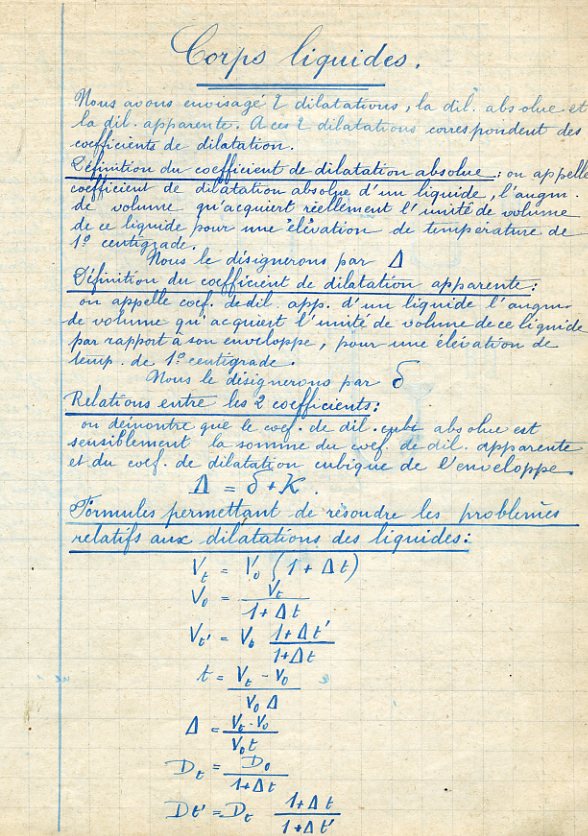 Corps liquides.
Nous avons envisagé 2 dilatations, la dil. absolue et
la dil. apparente. A ces 2 dilatations correspondent des
coefficients de dilatation.
Définition du coefficient de dilatation absolue : on appelle
coefficient de dilatation absolue d'un liquide, l'augm.
de volume qu'acquiert réellement l'unité de volume
de ce liquide pour une élévation de température de
1° centigrade.
Nous le désignerons par Δ
Définition du coefficient de dilatation apparente :
on appelle coef. de dil. app. d'un liquide l'augm.
de volume qu'acquiert l'unité de volume de ce liquide
par rapport à son enveloppe, pour une élévation de
temp. de 1° centigrade.
Nous le désignerons par δ
Relations entre les 2 coefficients :
on démontre que le coef. de dil. cube absolue est
sensiblement la somme du coef. de dil. apparente
et du coef. de dilatation cubique de l'enveloppe.
Δ = δ + K.
Formules permettant de résoudre les problèmes
relatifs aux dilatations des liquides :
V_t = V_0 (1 + Δt)
V_0 = V_t / (1 + Δt)
V_t' = V_t (1 + Δt') / (1 + Δt)
t = (V_t - V_0) / (V_0 Δ)
Δ = (V_t - V_0) / (V_0 t)
D_t = D_0 / (1 + Δt)
D_t' = D_t (1 + Δt) / (1 + Δt')